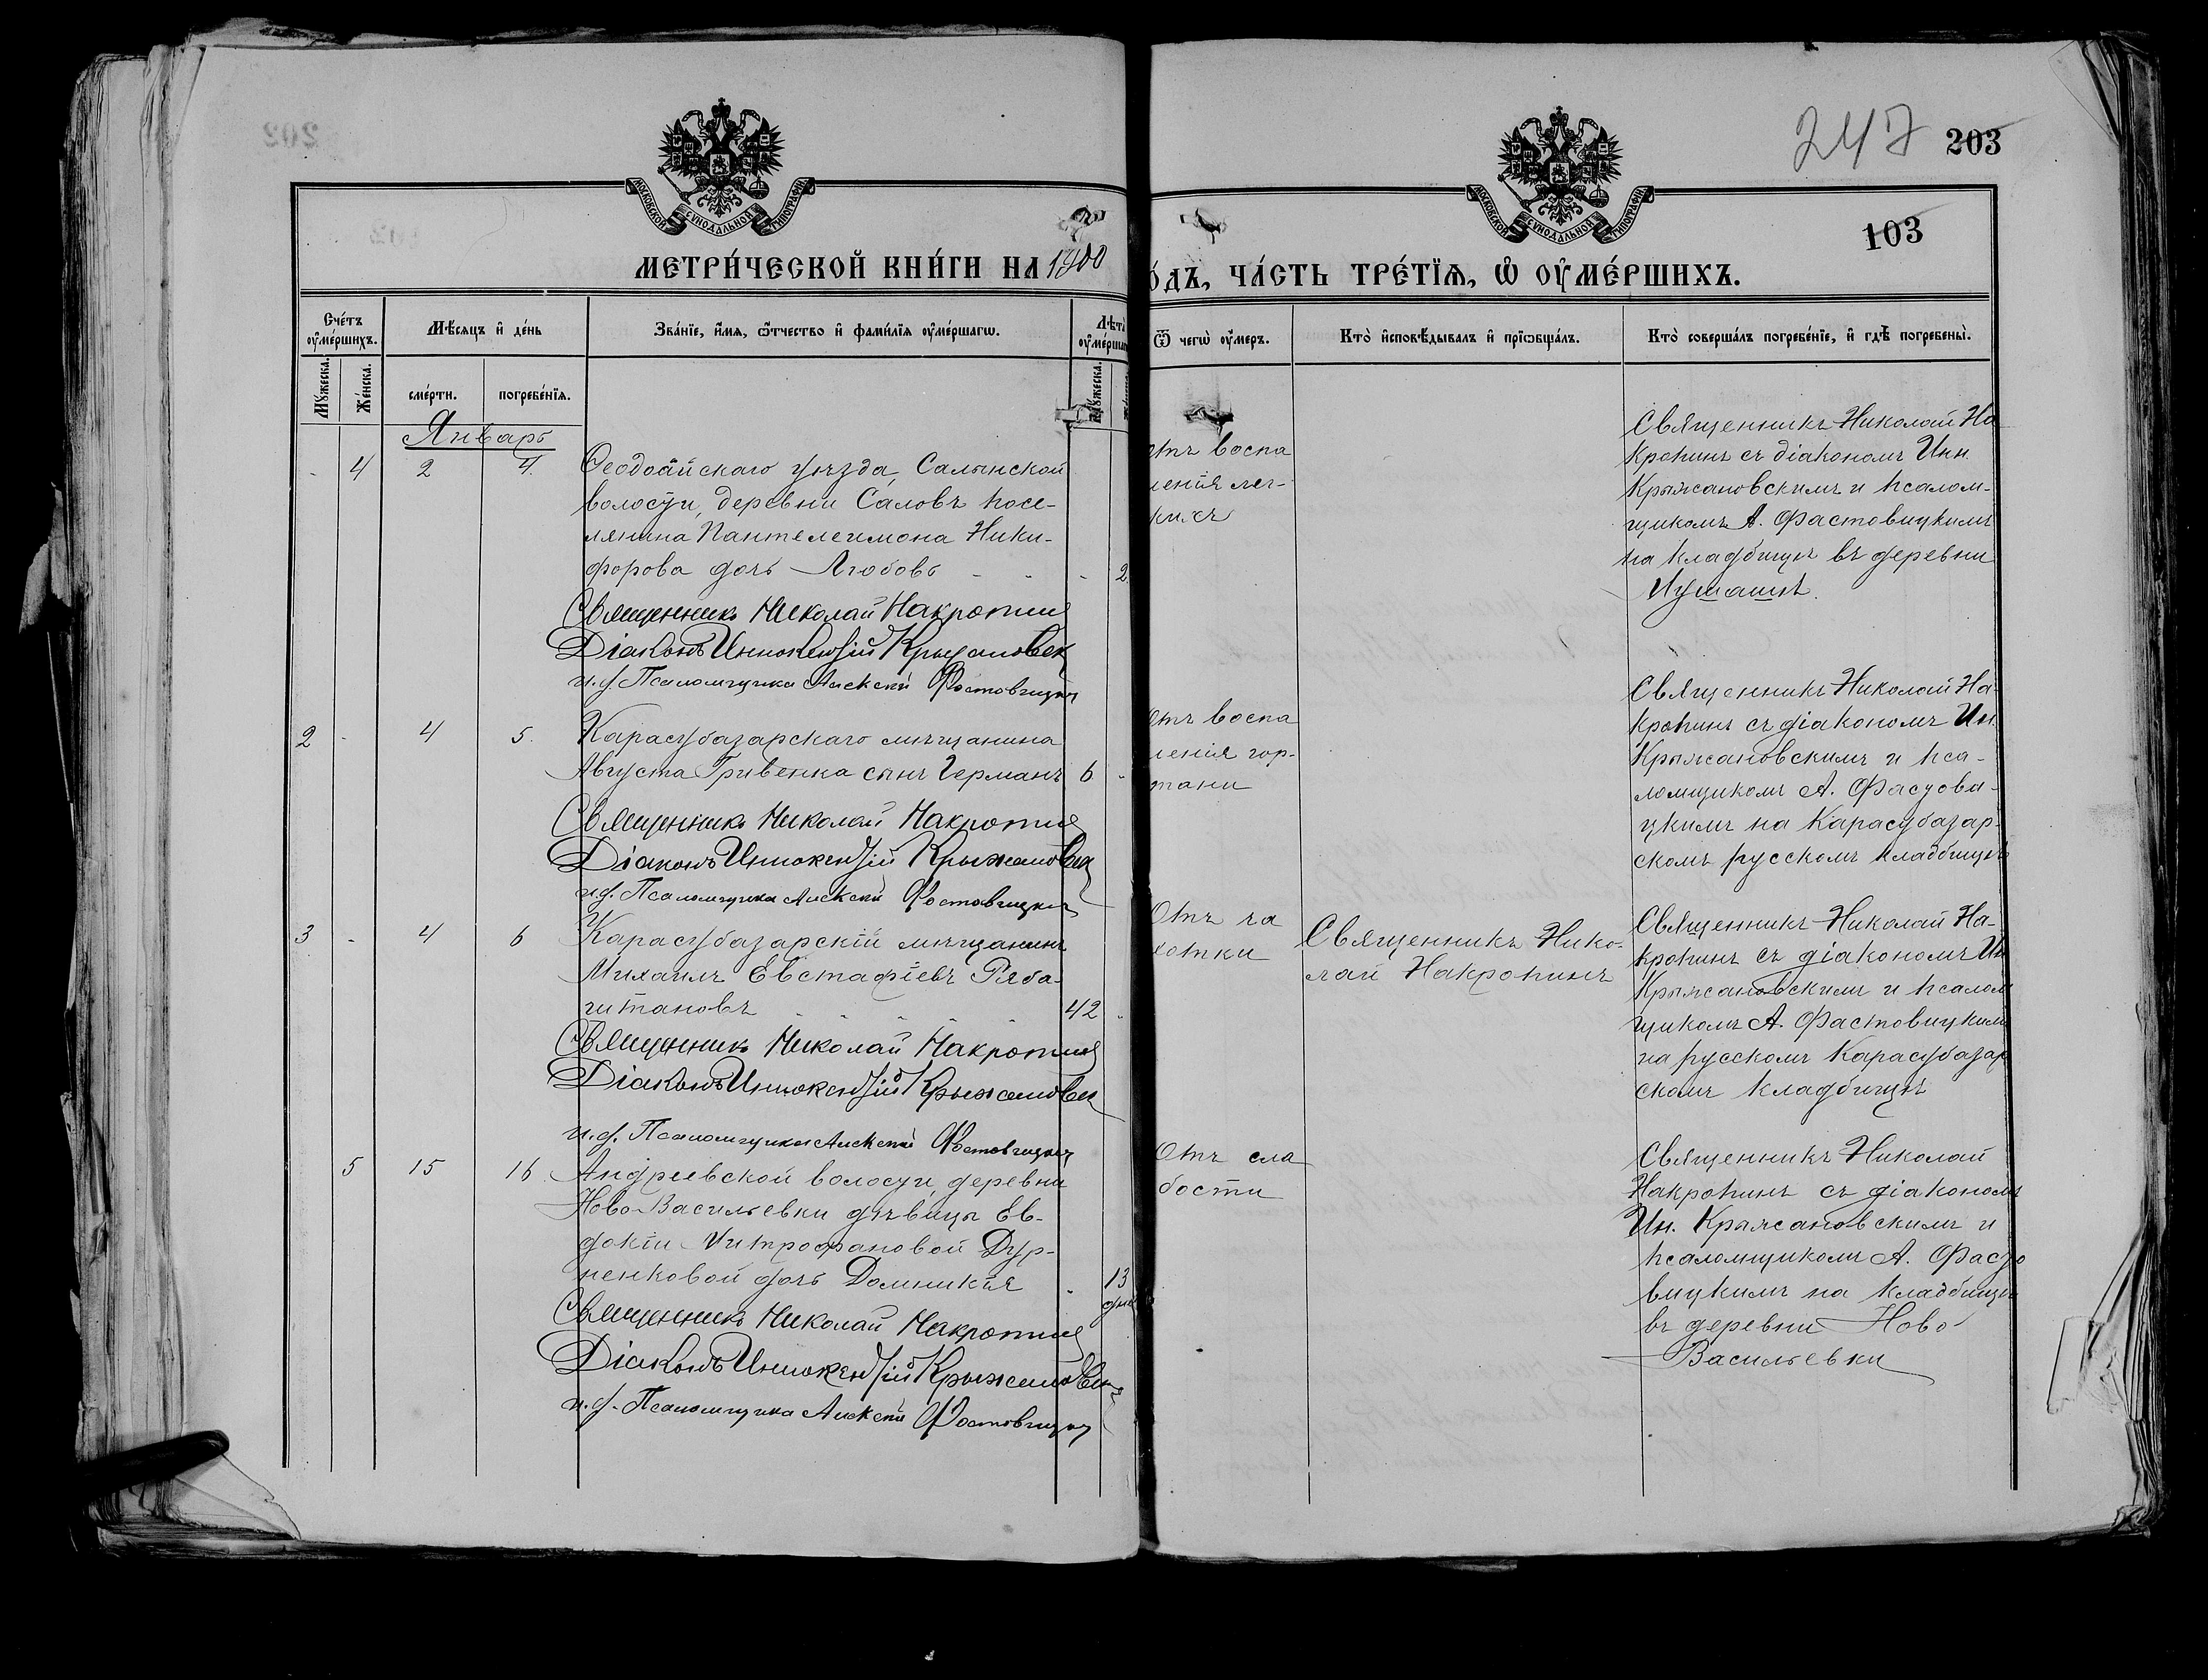 247 203
103
МОСКОВСКОЙ СѴНОДАЛЬНОЙ ТИПОГРАФІИ
МОСКОВСКОЙ СѴНОДАЛЬНОЙ ТИПОГРАФІИ
МЕТРИ́ЧЕСКОЙ КНИ́ГИ НА 1900
О́ДЪ, ЧА́СТЬ ТРЕ́ТЇѦ, Ѡ҆ ОУ҆МЕ́РШИХЪ.
Сче́тъ оу҆ме́ршихъ.
Мѣ́сяцъ и҆ де́нь
Зва́нїе, и҆́мѧ, ѻ҆́тчество и҆ фами́лїѧ оу҆ме́ршагѡ.
Лѣта̀ оу҆ме́рша
Ѿ чегѡ̀ оу҆́меръ.
Кто̀ и҆сповѣ́дывалъ и҆ прїѡбща́лъ.
Кто̀ соверша́лъ погребе́нїе, и҆ гдѣ̀ погребены̀.
Мꙋ́жеска.
Же́нска.
сме́рти.
погребе́нїѧ.
Мꙋ́жеска.
Январь
- 4 2 4.
Ѳеодосійскаго уѣзда, Салынской
волости, деревни Саловъ посе-
лянина Пантелеимона Ники-
форова дочь Любовь - - - 2
Священникъ Николай Накропин
Діаконъ Иннокентій Крыжановск
и.д. Псаломщика Алексѣй Фастовицкій
отъ воспа
ленія лег-
кихъ
Священникъ Николай На
кропинъ съ діакономъ Инн.
Крыжановскимъ и псалом-
щикомъ А. Фастовицкимъ
на кладбищѣ въ деревни
2 - 4 5.
Карасубазарскаго мѣщанина
Августа Гривенка сынъ Германъ 6 -
Священникъ Николай Накропин
Діаконъ Иннокентій Крыжановск
и.д. Псаломщика Алексѣй Фастовицкій
отъ воспа
ленія гор-
тани
Священникъ Николай На-
кропинъ съ діакономъ Ин.
Крыжановскимъ и пса-
ломщикомъ А. Фастови-
цкимъ на Карасубазар-
скомъ русскомъ кладбищѣ
3 - 4 6
Карасубазарскій мѣщанинъ
Михаилъ Евстафіевъ Ряба-
читановъ - - - - - 42 -
Священникъ Николай Накропин
Діаконъ Иннокентій Крыжановск
и.д. Псаломщика Алексѣй Фастовицкій
Отъ ча
хотки
Священникъ Нико-
лай Накропинъ
Священникъ Николай На-
кропинъ съ діакономъ Ин
Крыжановскимъ и псалом
щикомъ А. Фастовицкимъ
на русскомъ Карасубазар
скомъ кладбищѣ
5 15 16
Андреевской волости, деревни
Ново-Васильевки дѣвицы Ев-
докіи Митрофановой Дур-
ненковой дочь Домникія - 13
дне
Священникъ Николай Накропин
Діаконъ Иннокентій Крыжановск
и.д. Псаломщика Алексѣй Фастовицкій
Отъ сла
бости
Священникъ Николай
Накропинъ съ діакономъ
Ин. Крыжановскимъ и
псаломщикомъ А. Фасто
вицкимъ на кладбищѣ
въ деревни Ново-
Васильевки